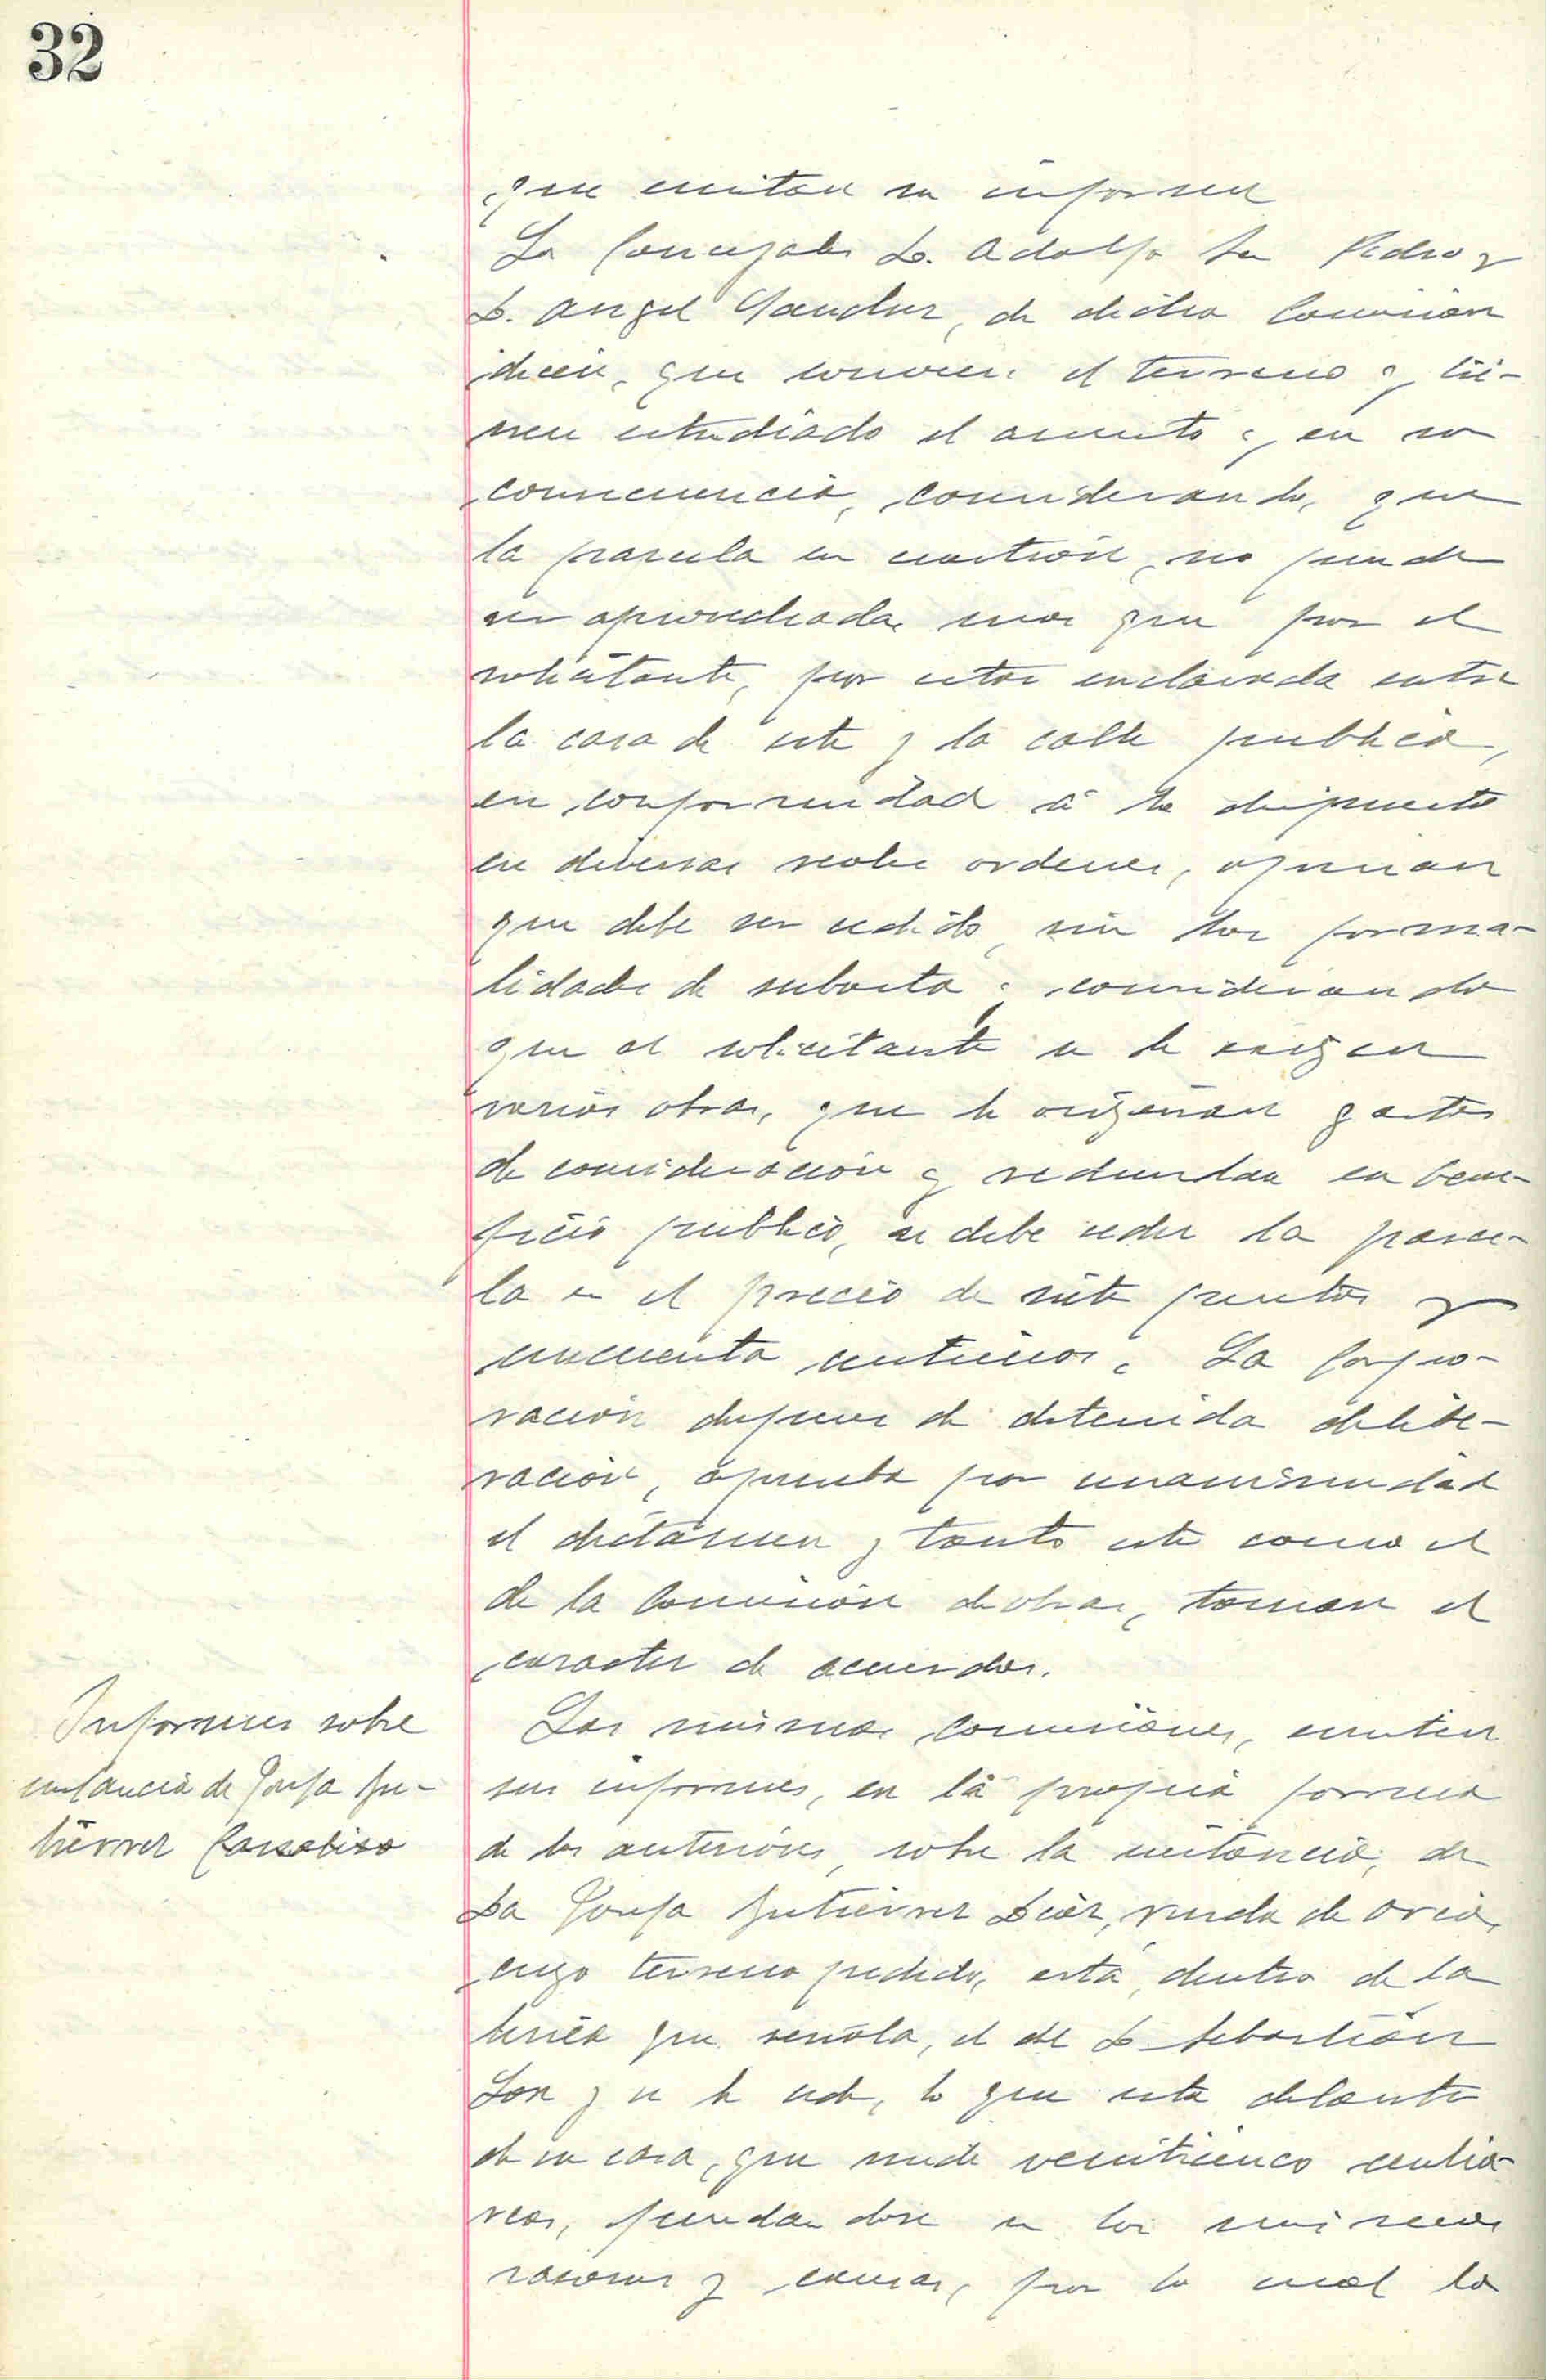 32
que emitan su informe
Los Concejales D. Adolfo San Pedro y
D. Angel Sanchez, de dicha Comision
dicen, que conocen el terreno y tie-
nen estudiado el asunto y en su
consecuencia, considerando, que
la parcela en cuestion, no puede
ser aprovechada mas que por el
solicitante, por estar enclavada entre
la casa de este y la calle publica,
en conformidad á lo dispuesto
en diversas reales ordenes, opinan
que debe ser cedido sin las forma-
lidades de subasta y considerando
que al solicitante se le exigen
varias obras, que le originan gastos
de consideración y redundan en bene-
ficio publico, se debe ceder la parce-
la en el precio de siete pesetas y
cincuenta centimos. La Corpo-
racion despues de detenida delibe-
racion, aprueba por unanimidad
el dictamen y tanto este como el
de la Comision de obras, toman el
caracter de acuerdos.
Informes sobre
instancia de Josefa Gu-
tierrez
Las mismas comisiones, emiten
sus informes, en la propia forma
de los anteriores, sobre la instancia, de
Da Josefa Gutierrez Diez, viuda de
cuyo terreno pedido, está, dentro de la
linea que señala, el de D. Sebastián
y se le cede, lo que esta delante
de su casa, que mide veinticinco centia-
reas, fundandose en las mismas
razones y causas, por lo cual la